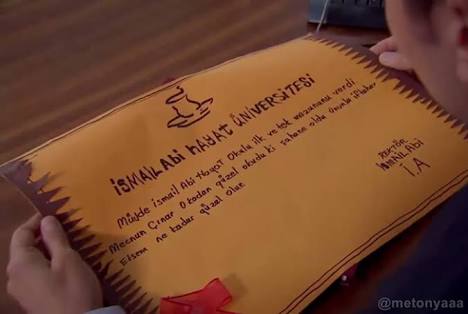 İSMAİL ABİ HAYAT ÜNİVERSİTESİ
Müjde İsmail Abi Hayat Okulu ilk ve tek mezununu verdi
Mecnun Çınar Okadan güzel okudu ki şahane oldu Onunla iftihar
Etsem ne kadar güzel olur
REKTÖR
İSMAİL ABİ
İ.A
@metonyaaa